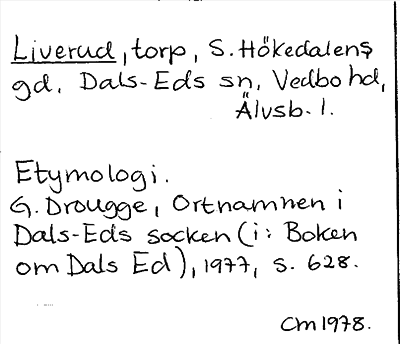 Liverud, torp, S. Hökedalens
gd, Dals-Eds sn, Vedbo hd,
Älvsb. l.
Etymologi.
G. Drougge, Ortnamnen i
Dals-Eds socken (i: Boken
om Dals Ed), 1977, s. 628.
Cm 1978.